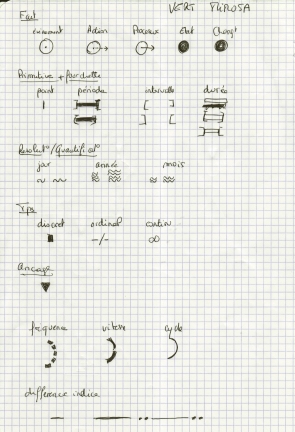 VERT TUROSA
Fait
événement Action Processus Etat Chang^t
Primitive + formelle
point période intervalle durée
Resolut° / Qualificat°
jour année mois
Tps
discret ordinal continu
-/- ∞
ancrage
fréquence vitesse cycle
différence indice